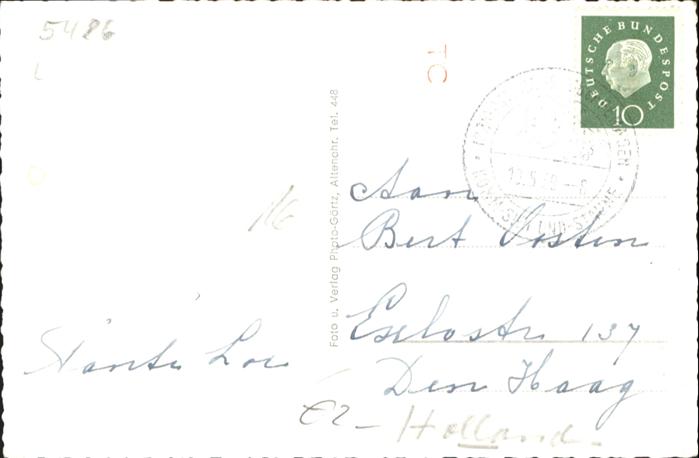 5486
DEUTSCHE BUNDESPOST
10
Foto u. Verlag Photo-Görtz, Altenahr, Tel. 448
Aan
Bert Oosten
Exelostr 137
Den Haag
Holland
Tante Loe
€2-